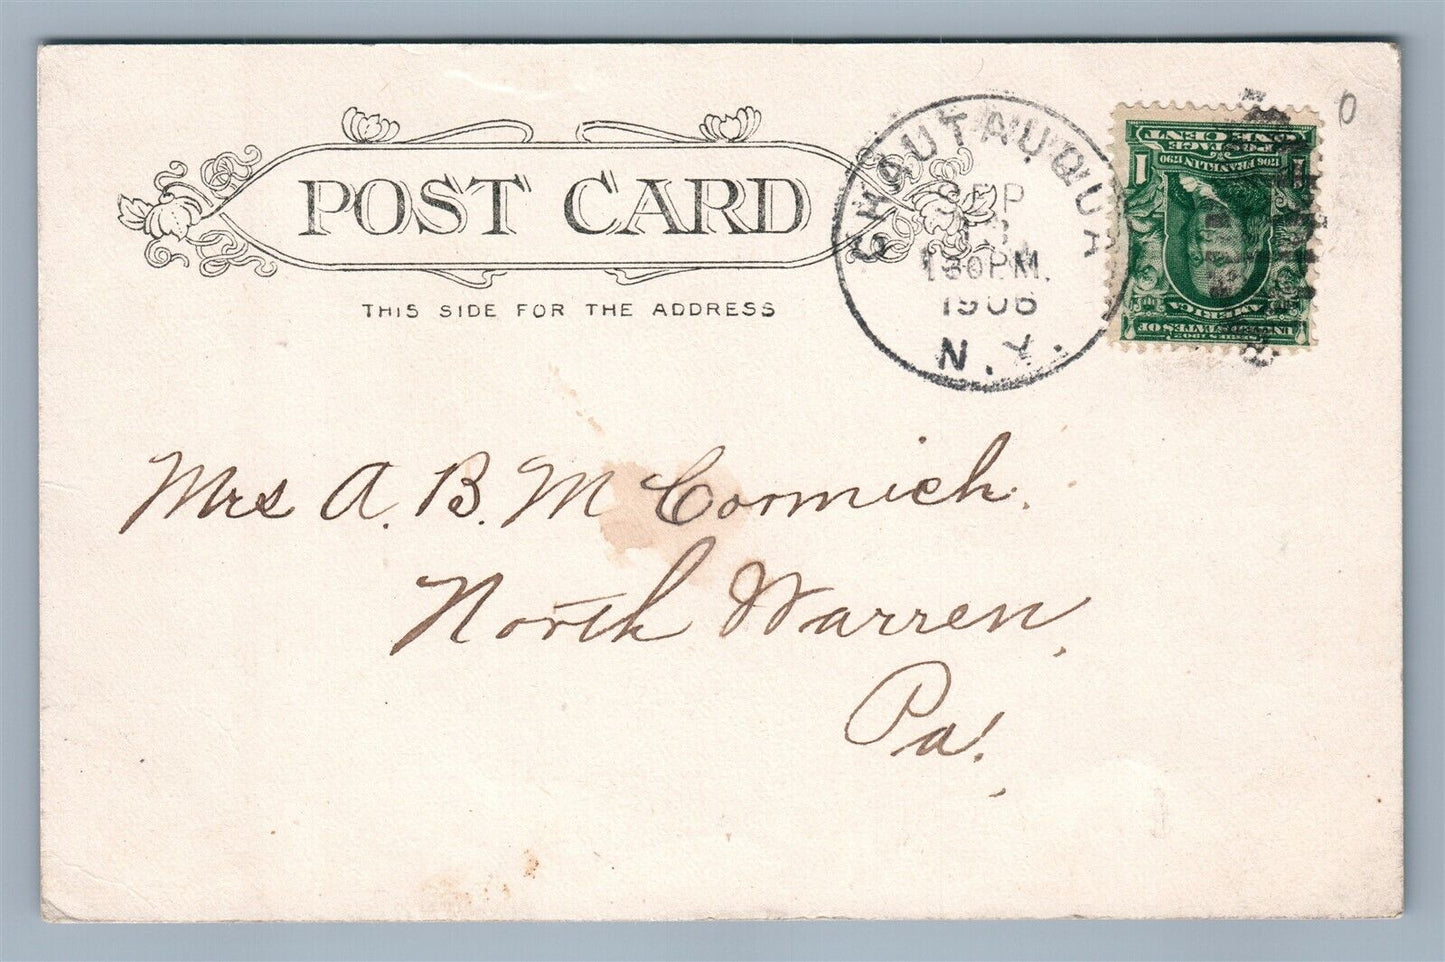 POST CARD
THIS SIDE FOR THE ADDRESS
CHAUTAUQUA
SEP
130PM.
1906
N.Y.
POSTAGE
ONE CENT
1706 FRANKLIN 1790
1
SERIES 1902
UNITED STATES OF
AMERICA
0
Mrs A. B. McCormick.
North Warren,
Pa.